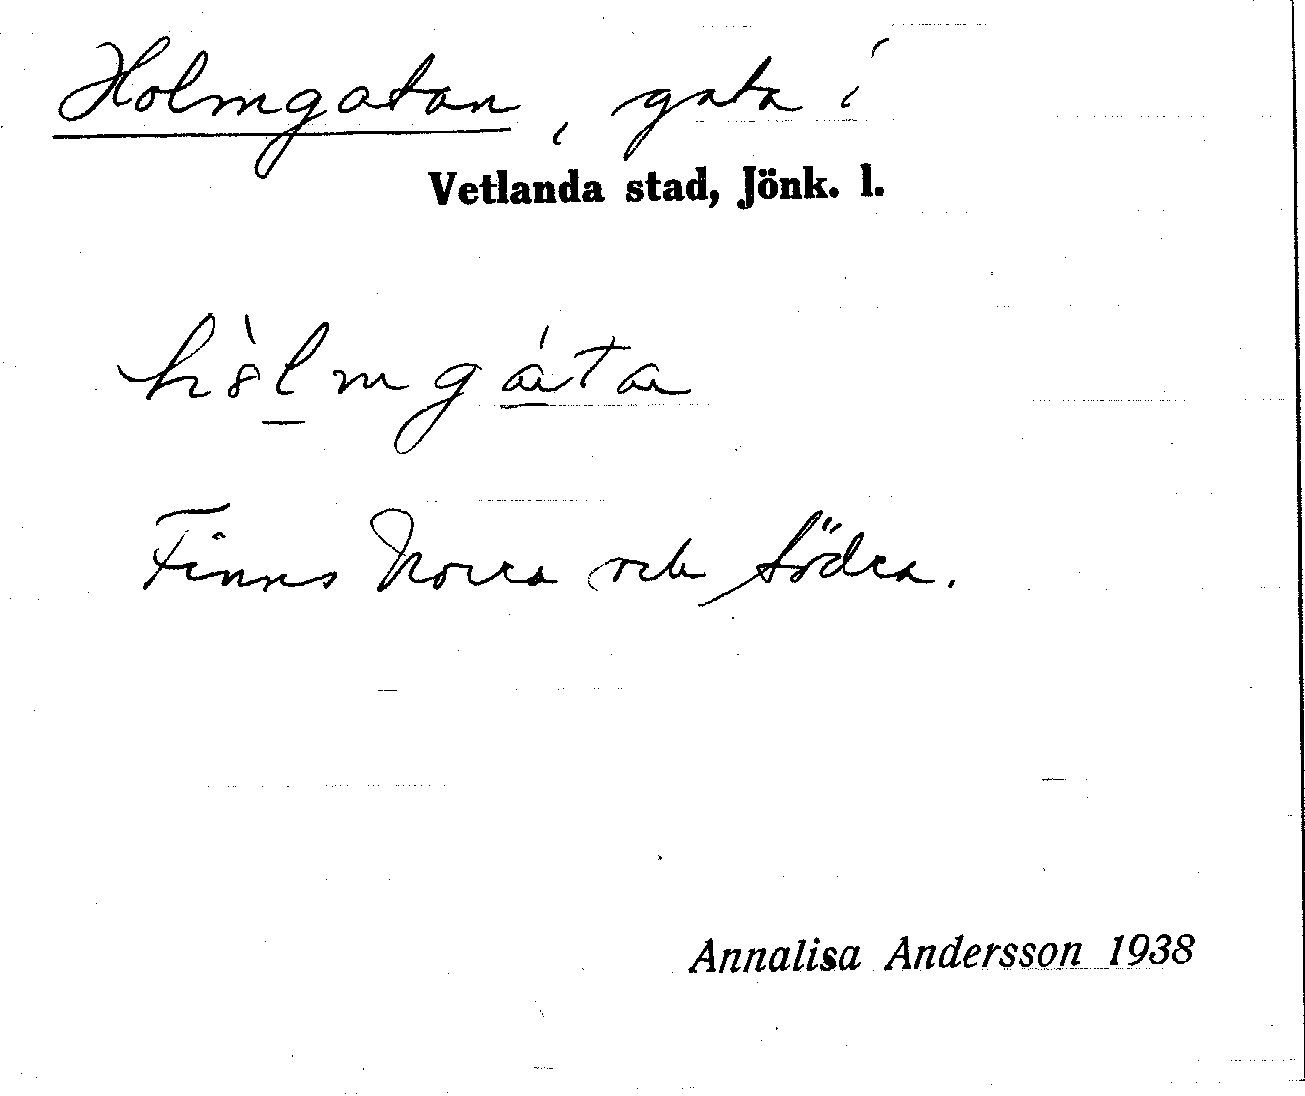 Holmgatan, gata i
Vetlanda stad, Jönk. l.
Finns Norra och Södra.
Annalisa Andersson 1938